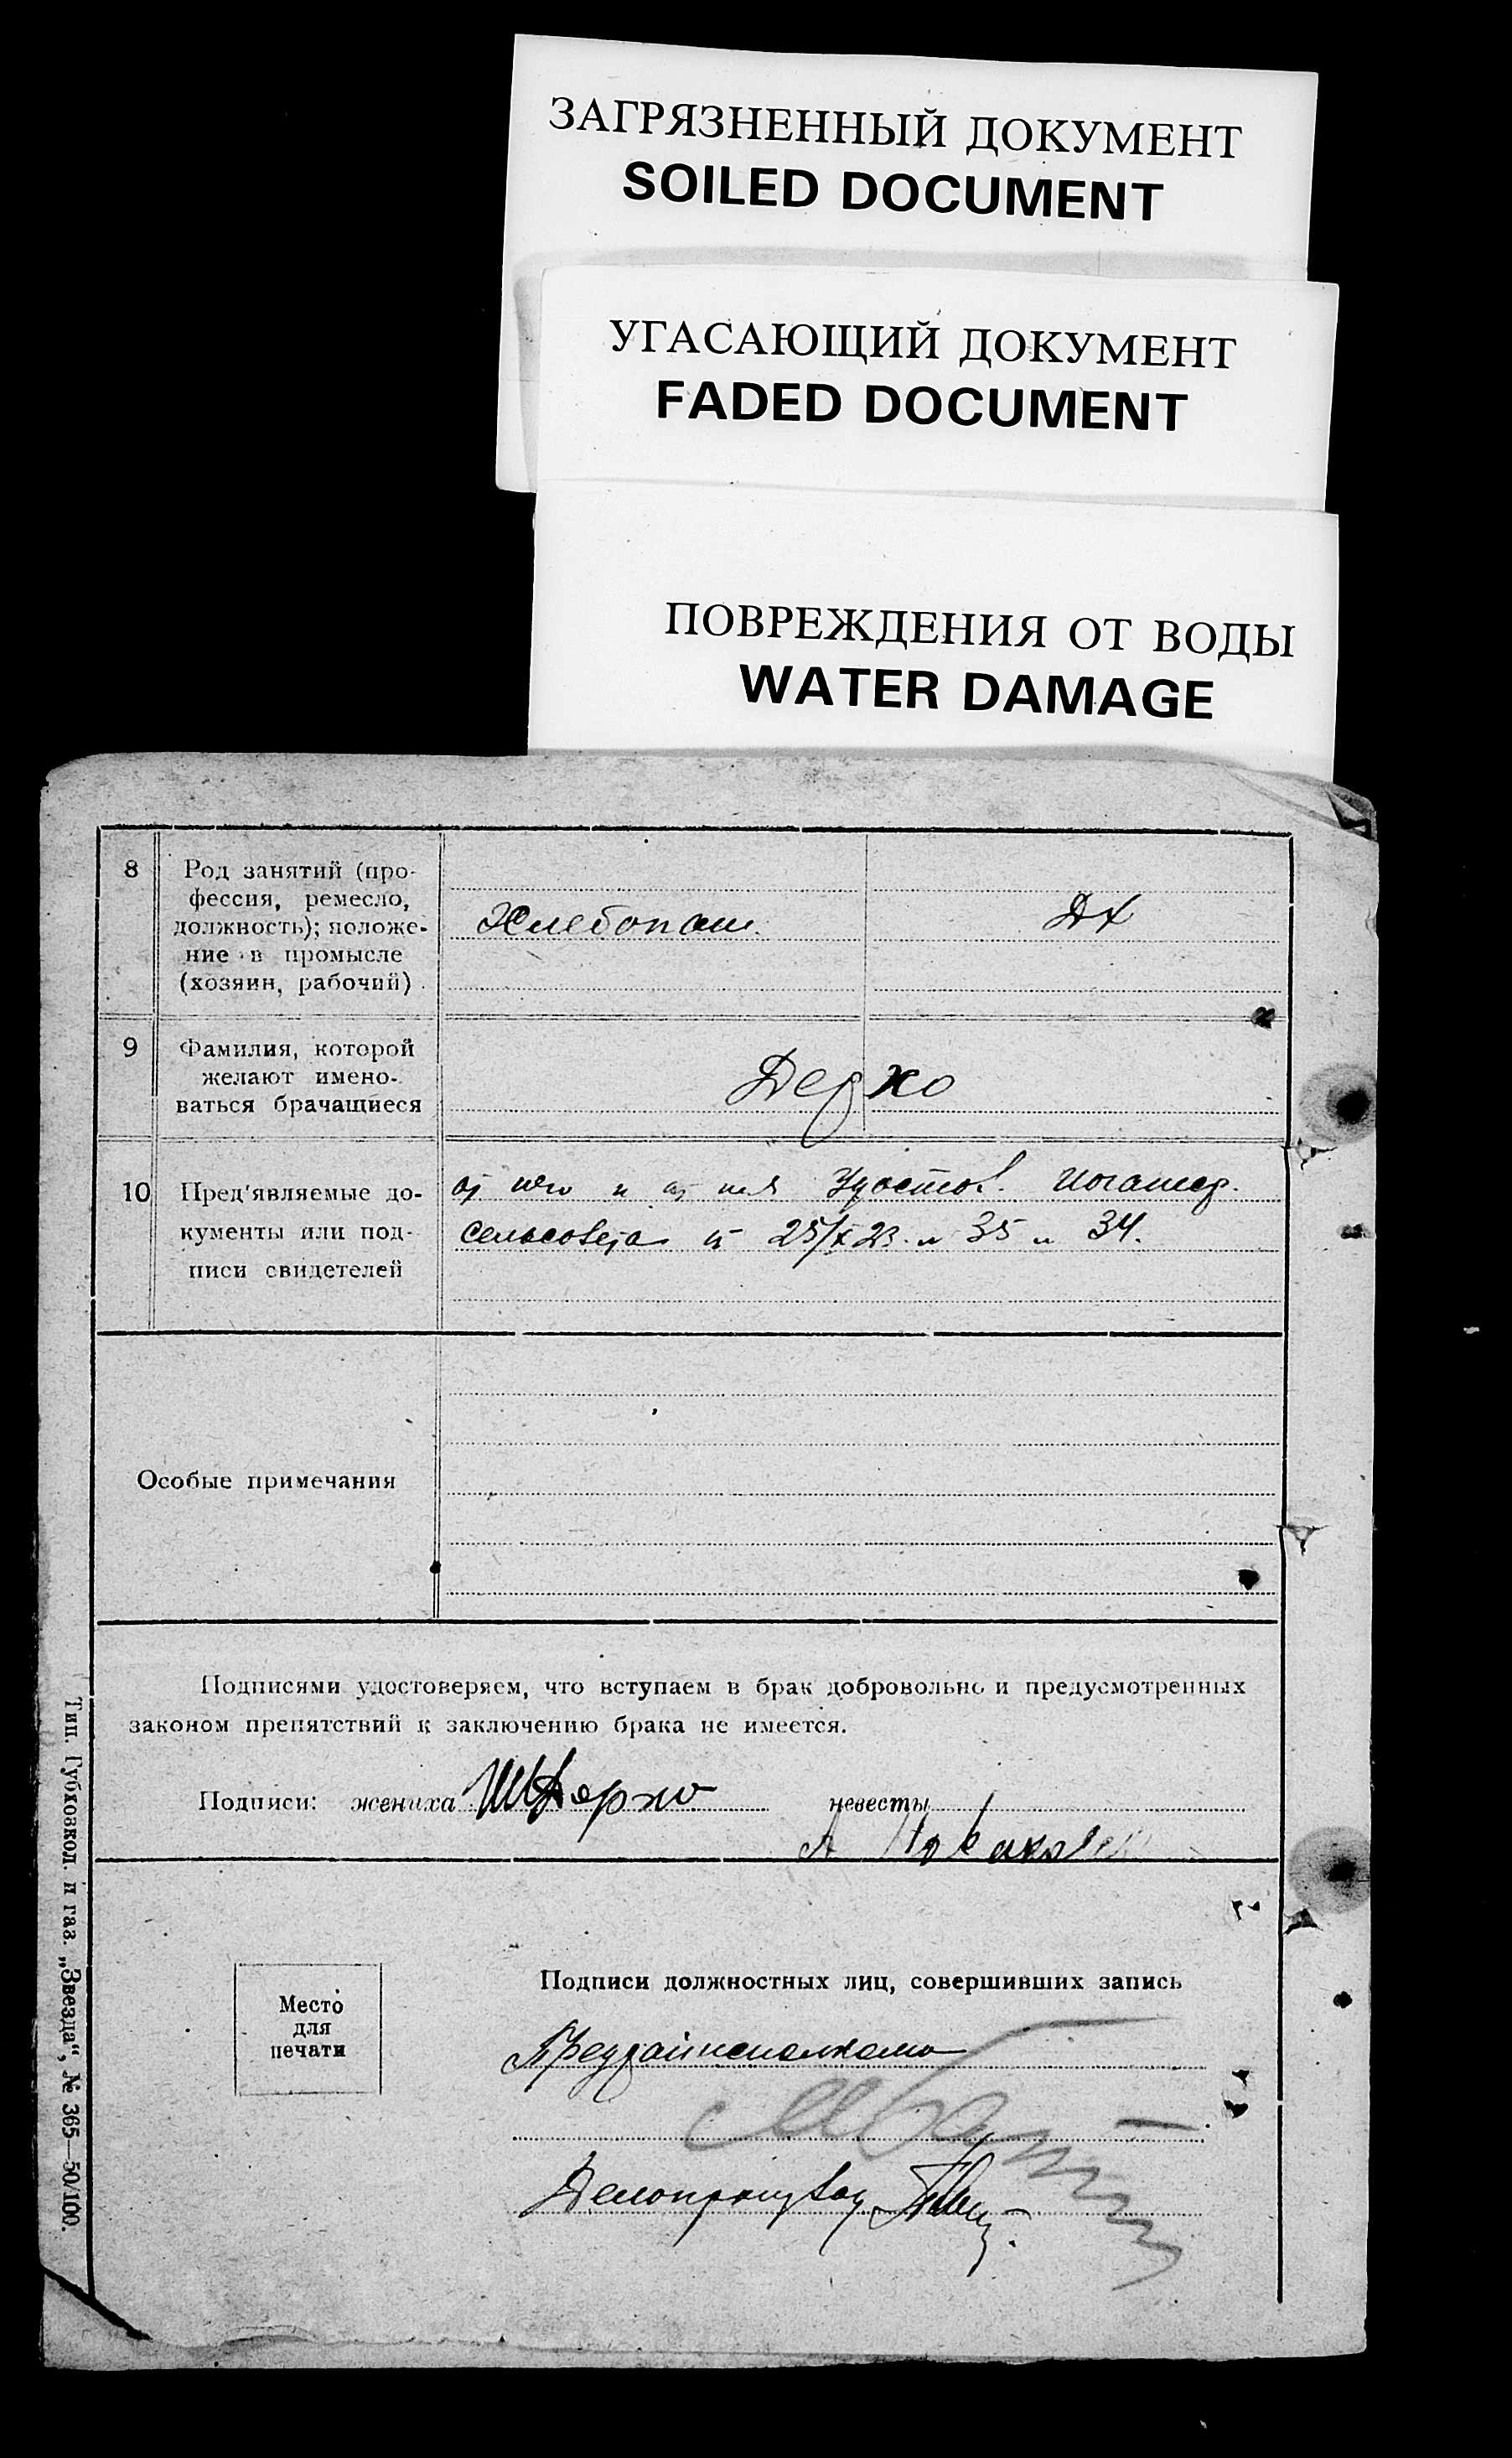 ЗАГРЯЗНЕННЫЙ ДОКУМЕНТ
SOILED DOCUMENT
УГАСАЮЩИЙ ДОКУМЕНТ
FADED DOCUMENT
ПОВРЕЖДЕНИЯ ОТ ВОДЫ
WATER DAMAGE
8
Род занятий (про-
фессия, ремесло,
должность); положе-
ние в промысле
(хозяин, рабочий)
Хлебопаш.
ДХ
9
Фамилия, которой
желают имено-
ваться брачащиеся
Держо
10
Пред'являемые до-
кументы или под-
писи свидетелей
от него и от нея Удостов.
сельсовета от 25/X 23. № 35 и 34.
Особые примечания
Подписями удостоверяем, что вступаем в брак добровольно и предусмотренных
законом препятствий к заключению брака не имеется.
Подписи: жениха невесты
Место
для
печати
Подписи должностных лиц, совершивших запись
Предрайисполкома
Делопроизвод
Тип. Губхозкол. и газ. „Звезда", № 365—50/100.